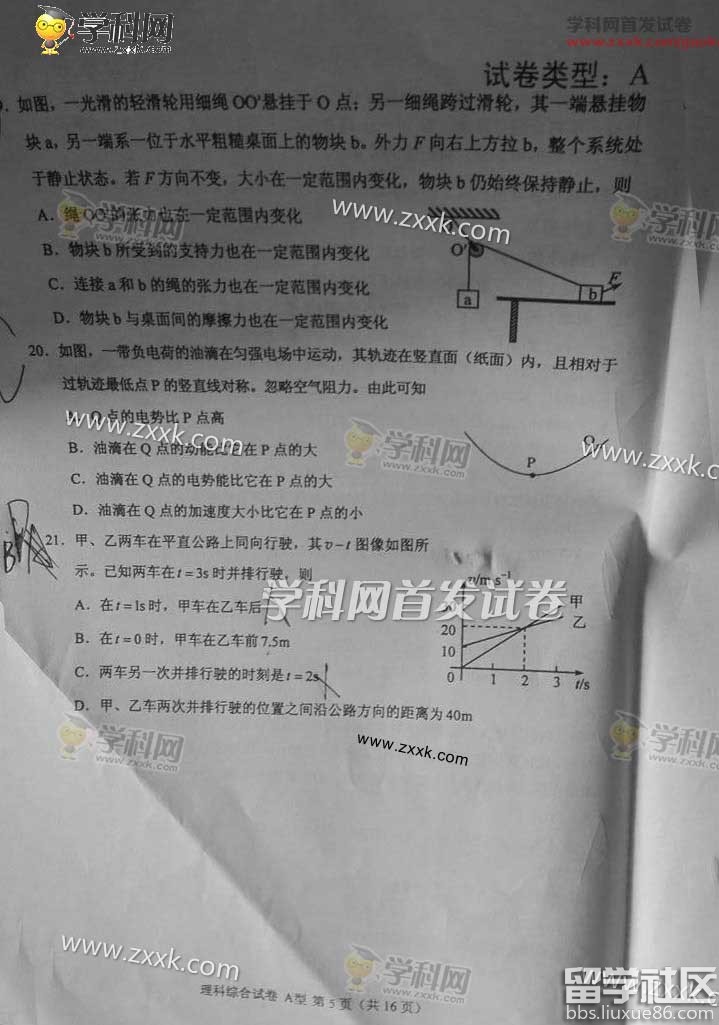 学科网
www.zxxk.com
学科网首发试卷
试卷类型：A
如图，一光滑的轻滑轮用细绳OO'悬挂于O点；另一细绳跨过滑轮，其一端悬挂物
块a，另一端系一位于水平粗糙桌面上的物块b。外力F向右上方拉b，整个系统处
于静止状态。若F方向不变，大小在一定范围内变化，物块b仍始终保持静止，则
A．绳OO'的张力也在一定范围内变化
www.zxxk.com
学科网
www.zxxk.com
B．物块b所受到的支持力也在一定范围内变化
C．连接a和b的绳的张力也在一定范围内变化
D．物块b与桌面间的摩擦力也在一定范围内变化
O'
a
b
F
20．如图，一带负电荷的油滴在匀强电场中运动，其轨迹在竖直面（纸面）内，且相对于
过轨迹最低点P的竖直线对称。忽略空气阻力。由此可知
Q点的电势比P点高
www.zxxk.com
B．油滴在Q点的动能比它在P点的大
C．油滴在Q点的电势能比它在P点的大
D．油滴在Q点的加速度大小比它在P点的小
学科网
www.zxxk.com
P
Q
www.zxxk.com
21．甲、乙两车在平直公路上同向行驶，其v-t图像如图所
示。已知两车在t=3s时并排行驶，则
A．在t=1s时，甲车在乙车后
B．在t=0时，甲车在乙车前7.5m
C．两车另一次并排行驶的时刻是t=2s
D．甲、乙车两次并排行驶的位置之间沿公路方向的距离为40m
学科网首发试卷
v/m s⁻¹
甲
乙
20
10
0 1 2 3 t/s
www.zxxk.com
学科网
www.zxxk.com
学科网
www.zxxk.com
www.zxxk.com
学科网
www.zxxk.com
理科综合试卷 A型 第5页（共16页）
留学社区
bbs.liuxue86.com